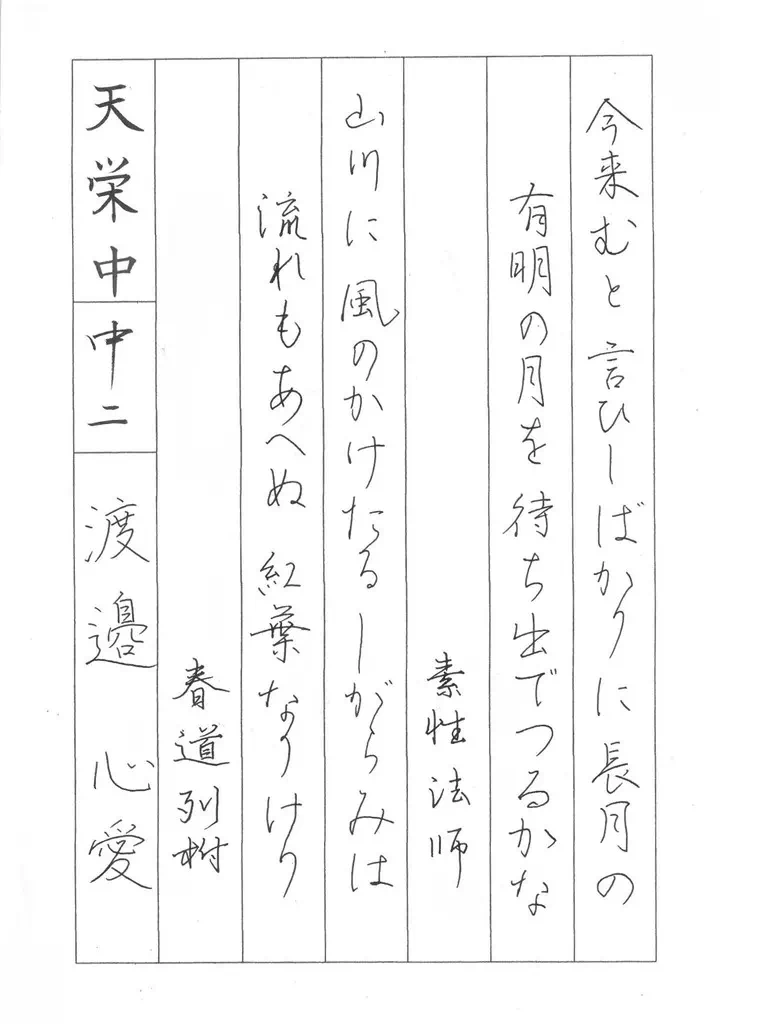 今来むと言ひしばかりに長月の
有明の月を待ち出でつるかな
素性法師
山川に風のかけたるしがらみは
流れもあへぬ紅葉なりけり
春道列樹
天栄中 中二 渡邉 心愛